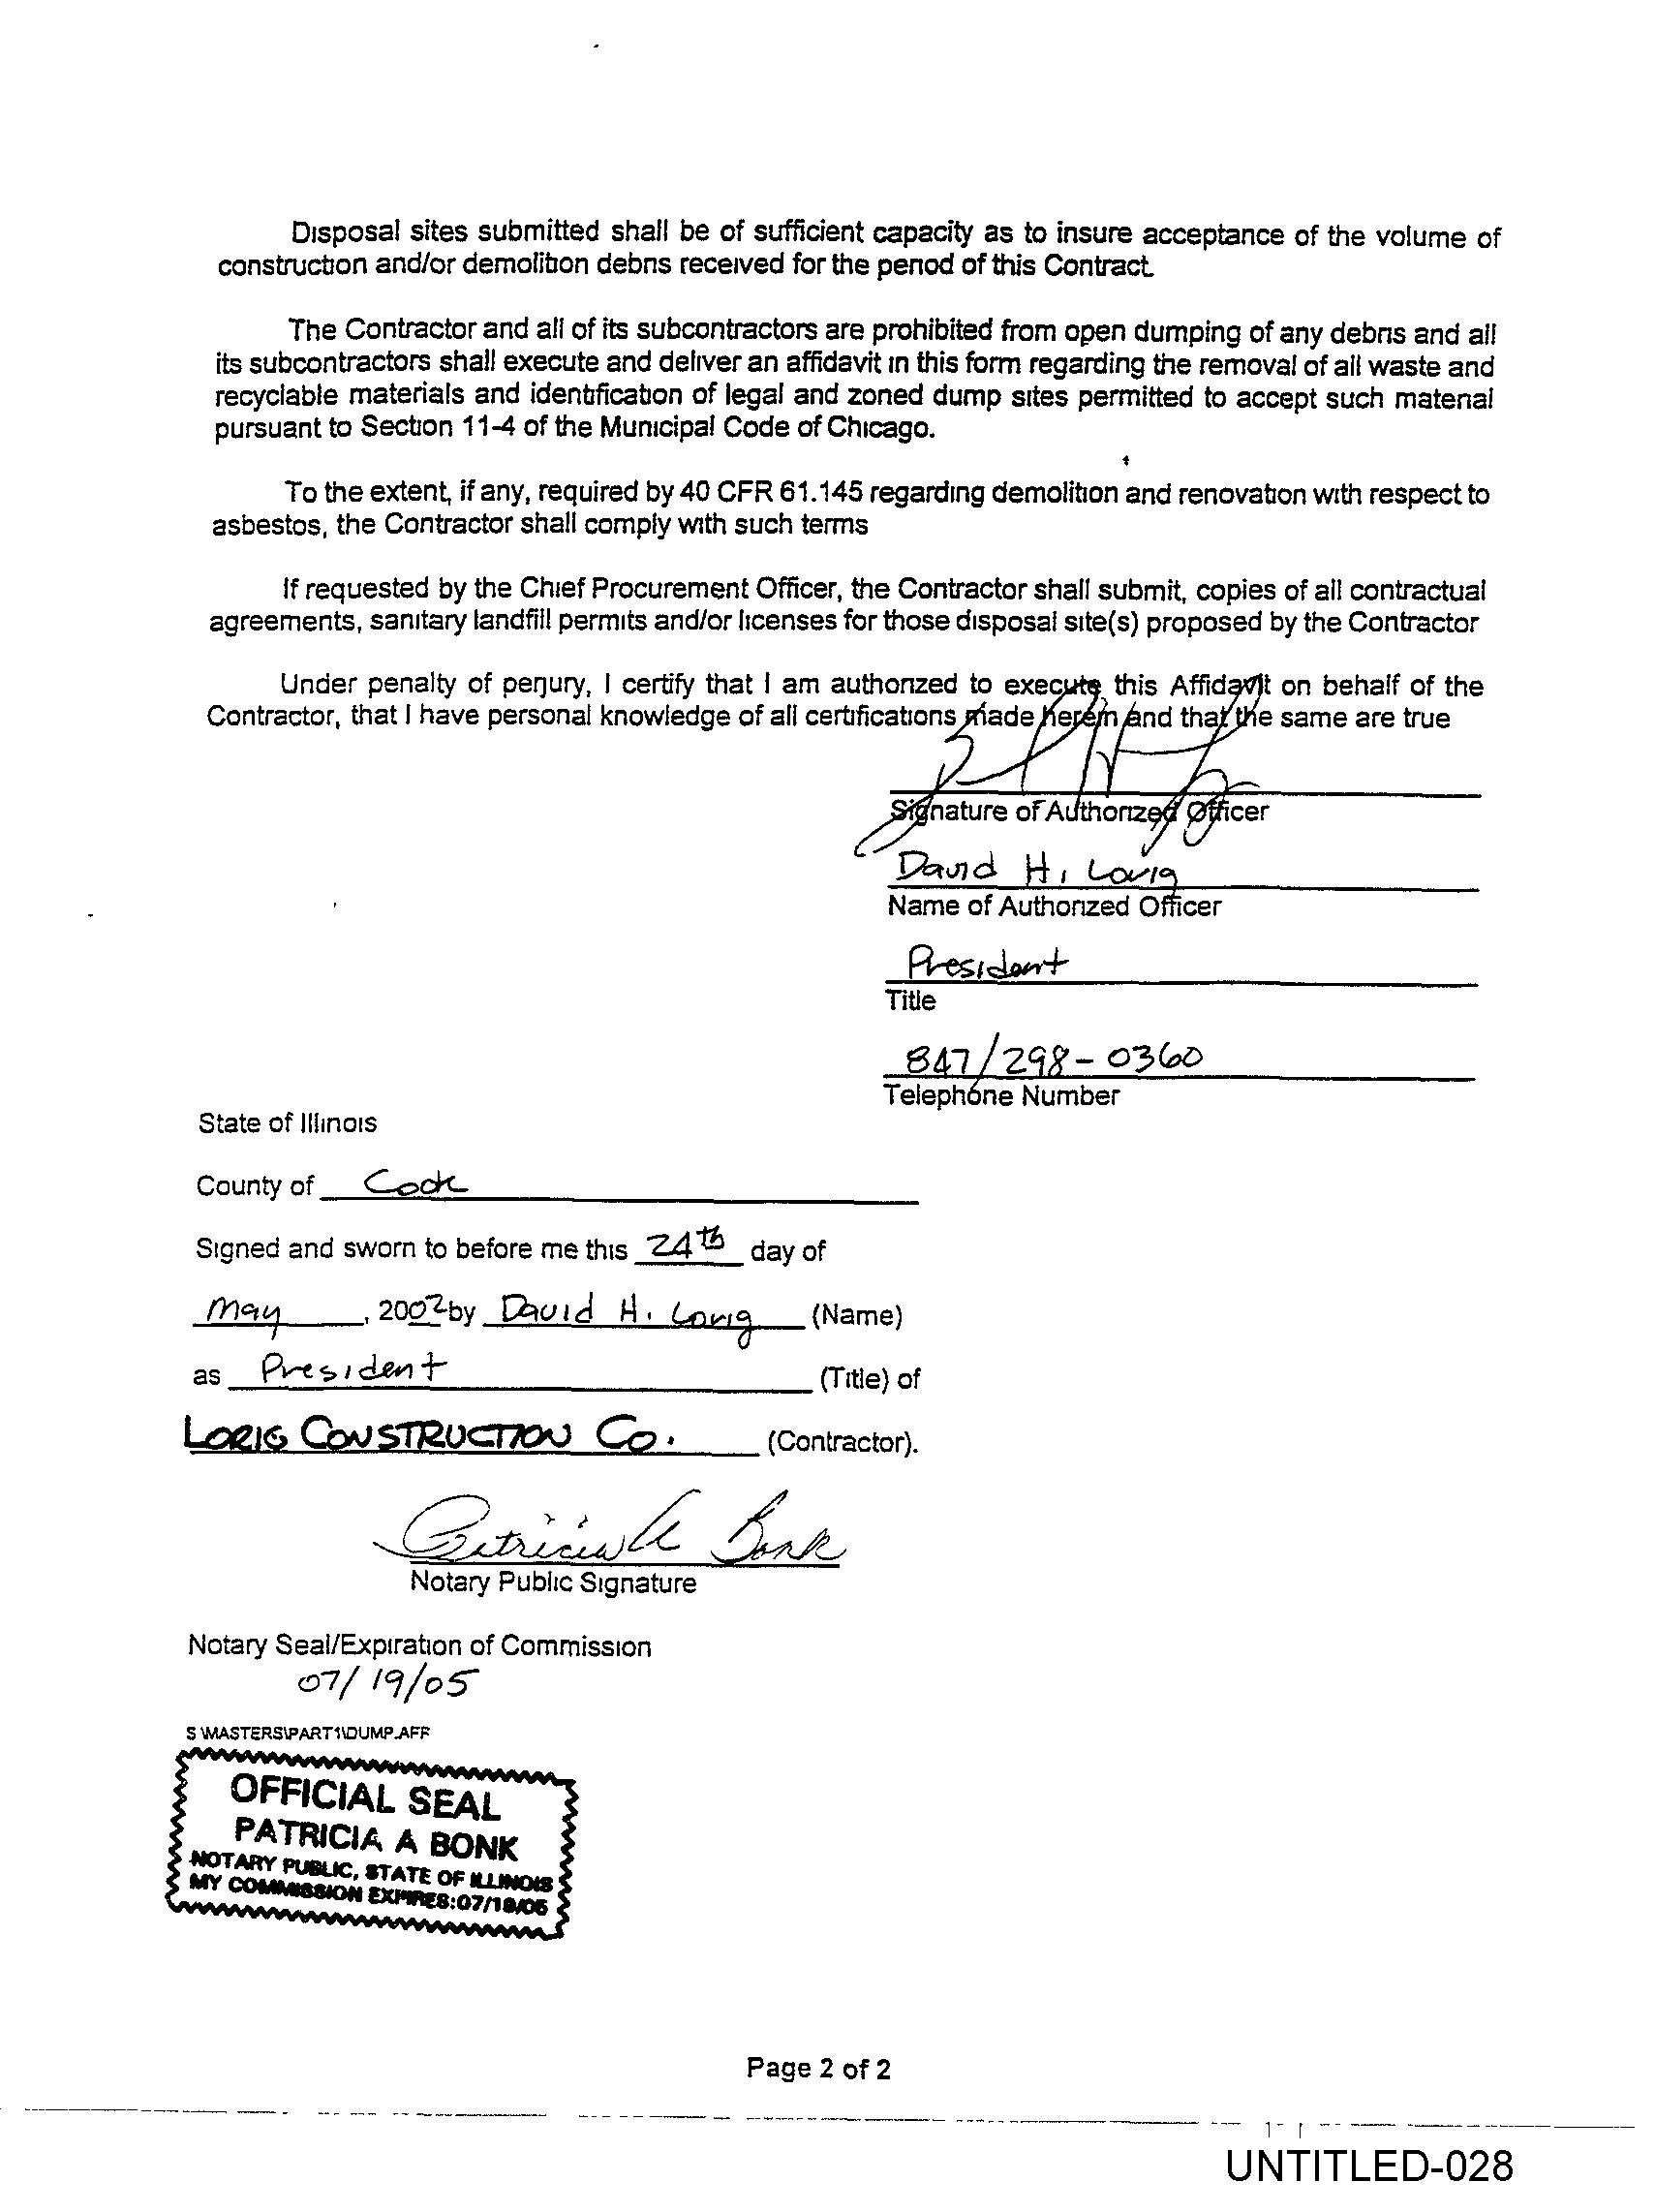 Disposal sites submitted shall be of sufficient capacity as to insure acceptance of the volume of
construction and/or demolition debris received for the period of this Contract
The Contractor and all of its subcontractors are prohibited from open dumping of any debris and all
its subcontractors shall execute and deliver an affidavit in this form regarding the removal of all waste and
recyclable materials and identification of legal and zoned dump sites permitted to accept such material
pursuant to Section 11-4 of the Municipal Code of Chicago.
To the extent, if any, required by 40 CFR 61.145 regarding demolition and renovation with respect to
asbestos, the Contractor shall comply with such terms
If requested by the Chief Procurement Officer, the Contractor shall submit, copies of all contractual
agreements, sanitary landfill permits and/or licenses for those disposal site(s) proposed by the Contractor
Under penalty of perjury, I certify that I am authorized to execute this Affidavit on behalf of the
Contractor, that I have personal knowledge of all certifications made herein and that the same are true
Signature of Authorized Officer
David H. Lorig
Name of Authorized Officer
President
Title
847/298-0360
Telephone Number
State of Illinois
County of Cook
Signed and sworn to before me this 24th day of
May, 2002 by David H. Lorig (Name)
as President (Title) of
LORIG CONSTRUCTION CO. (Contractor).
Patricia A Bonk
Notary Public Signature
Notary Seal/Expiration of Commission
07/19/05
S \MASTERS\PART1\DUMP.AFF
OFFICIAL SEAL
PATRICIA A BONK
NOTARY PUBLIC, STATE OF ILLINOIS
MY COMMISSION EXPIRES:07/19/05
Page 2 of 2
UNTITLED-028